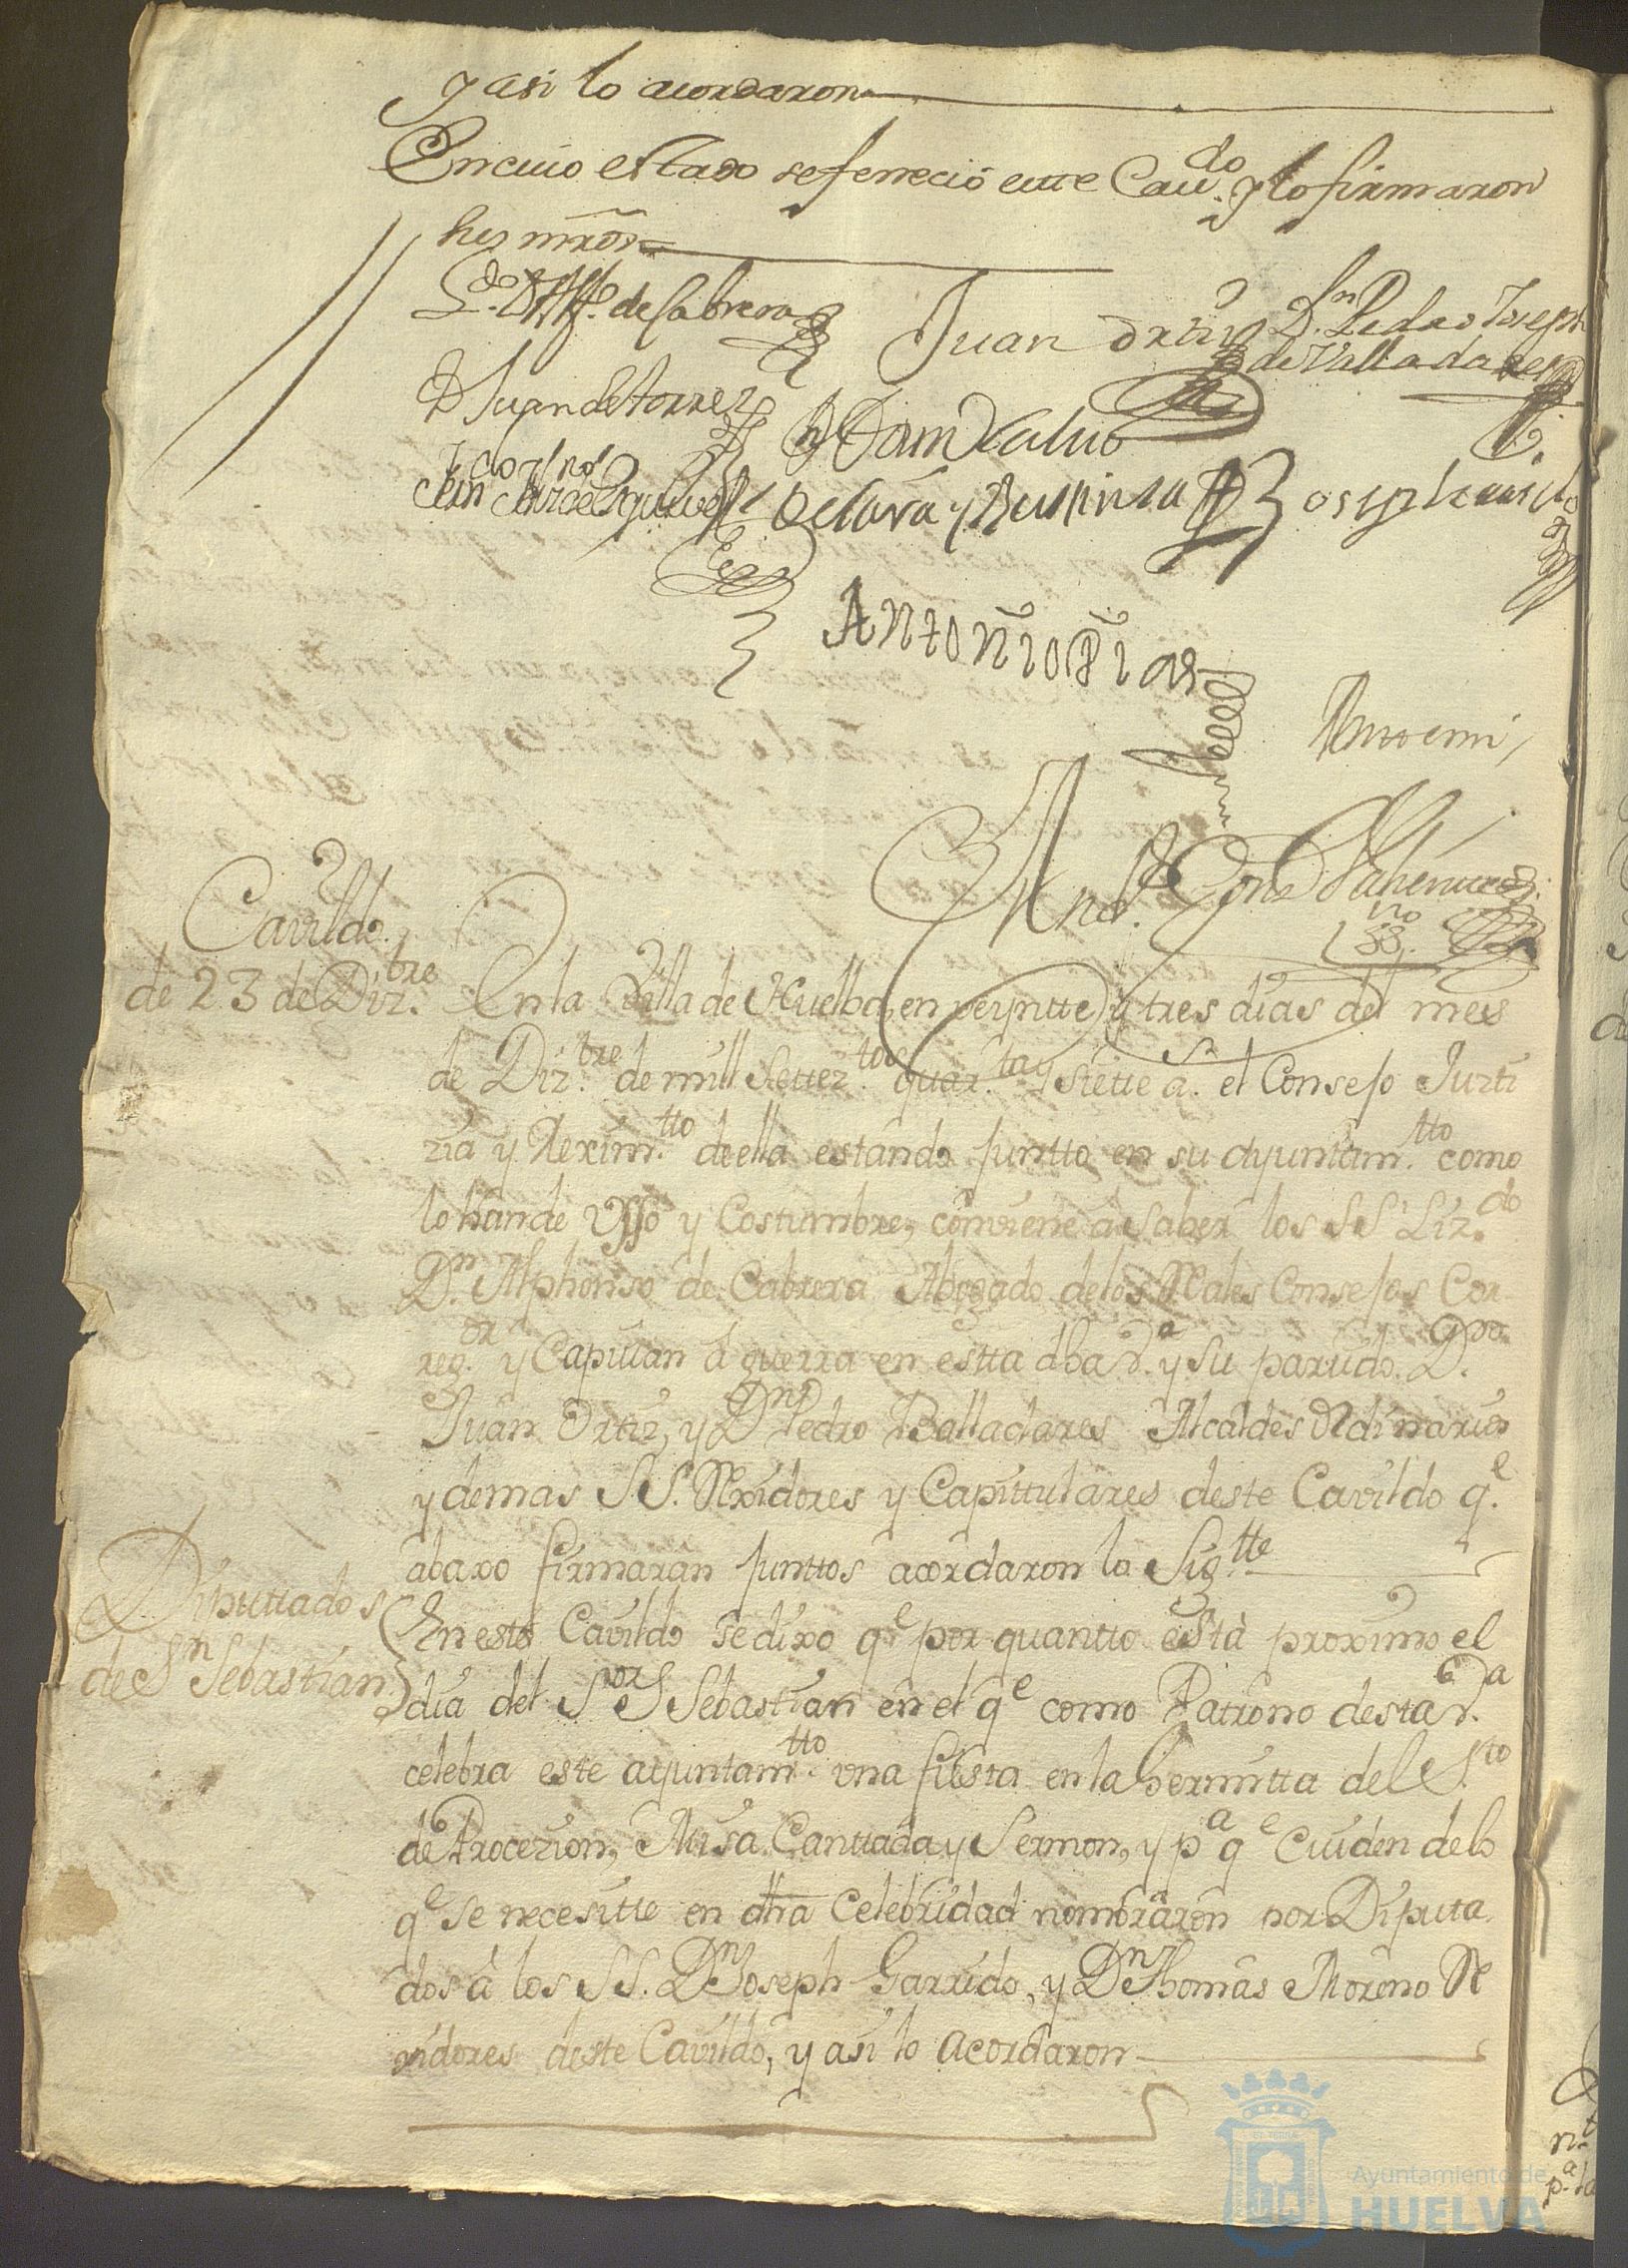 y asi lo acordaron
En cuio estado se feneció este Cau.do y lo firmaron
sus mrds
L.do D. Alf.o de Cabrera
Juan Ortiz
Dn. Pedro Joseph
de Valladares
D Juan de torres
Antonio Dias
Antte mi,
Cavildo
de 23 de Diz.bre
En la Villa de Huelba, en veyntte y tres dias del mes
de Diz.bre de mill settez.tos quar.ta y siette a.s el Consejo Justi
zia y Rexim.tto de ella estando juntto en su ayuntam.tto como
lo han de Vsso y Costumbre, conviene a saber los SS.s Liz.do
D.n Alphonso de Cabrera Abogado de los Rales Consejos Cor
reg.or y Capitan a guerra en estta dha V.a y su partido. D.n
Juan Ortiz, y Dn Pedro Balladares Alcaldes Ordinarios
y demas SS. Rexidores y Capittulares deste Cavildo q.e
abaxo firmaran junttos acordaron lo Sig.tte
Diputtados
de Sn Sebastian
En este Cavildo se dixo qe por quantto està proximo el
dia del S.or S Sebastian en el qe como Patrono desta V.a
celebra este ayuntam.tto una fiesta en la hermitta del S.to
de Procezion, Misa Canttada y Sermon, y pa qe Cuiden de lo
qe se necesitte en dha Celebridad nombraron por Diputa
dos à los SS. Dn Joseph Garrido, y Dn Thomas Moreno Re
xidores deste Cavildo, y asi lo acordaron
Ayuntamiento de
HUELVA